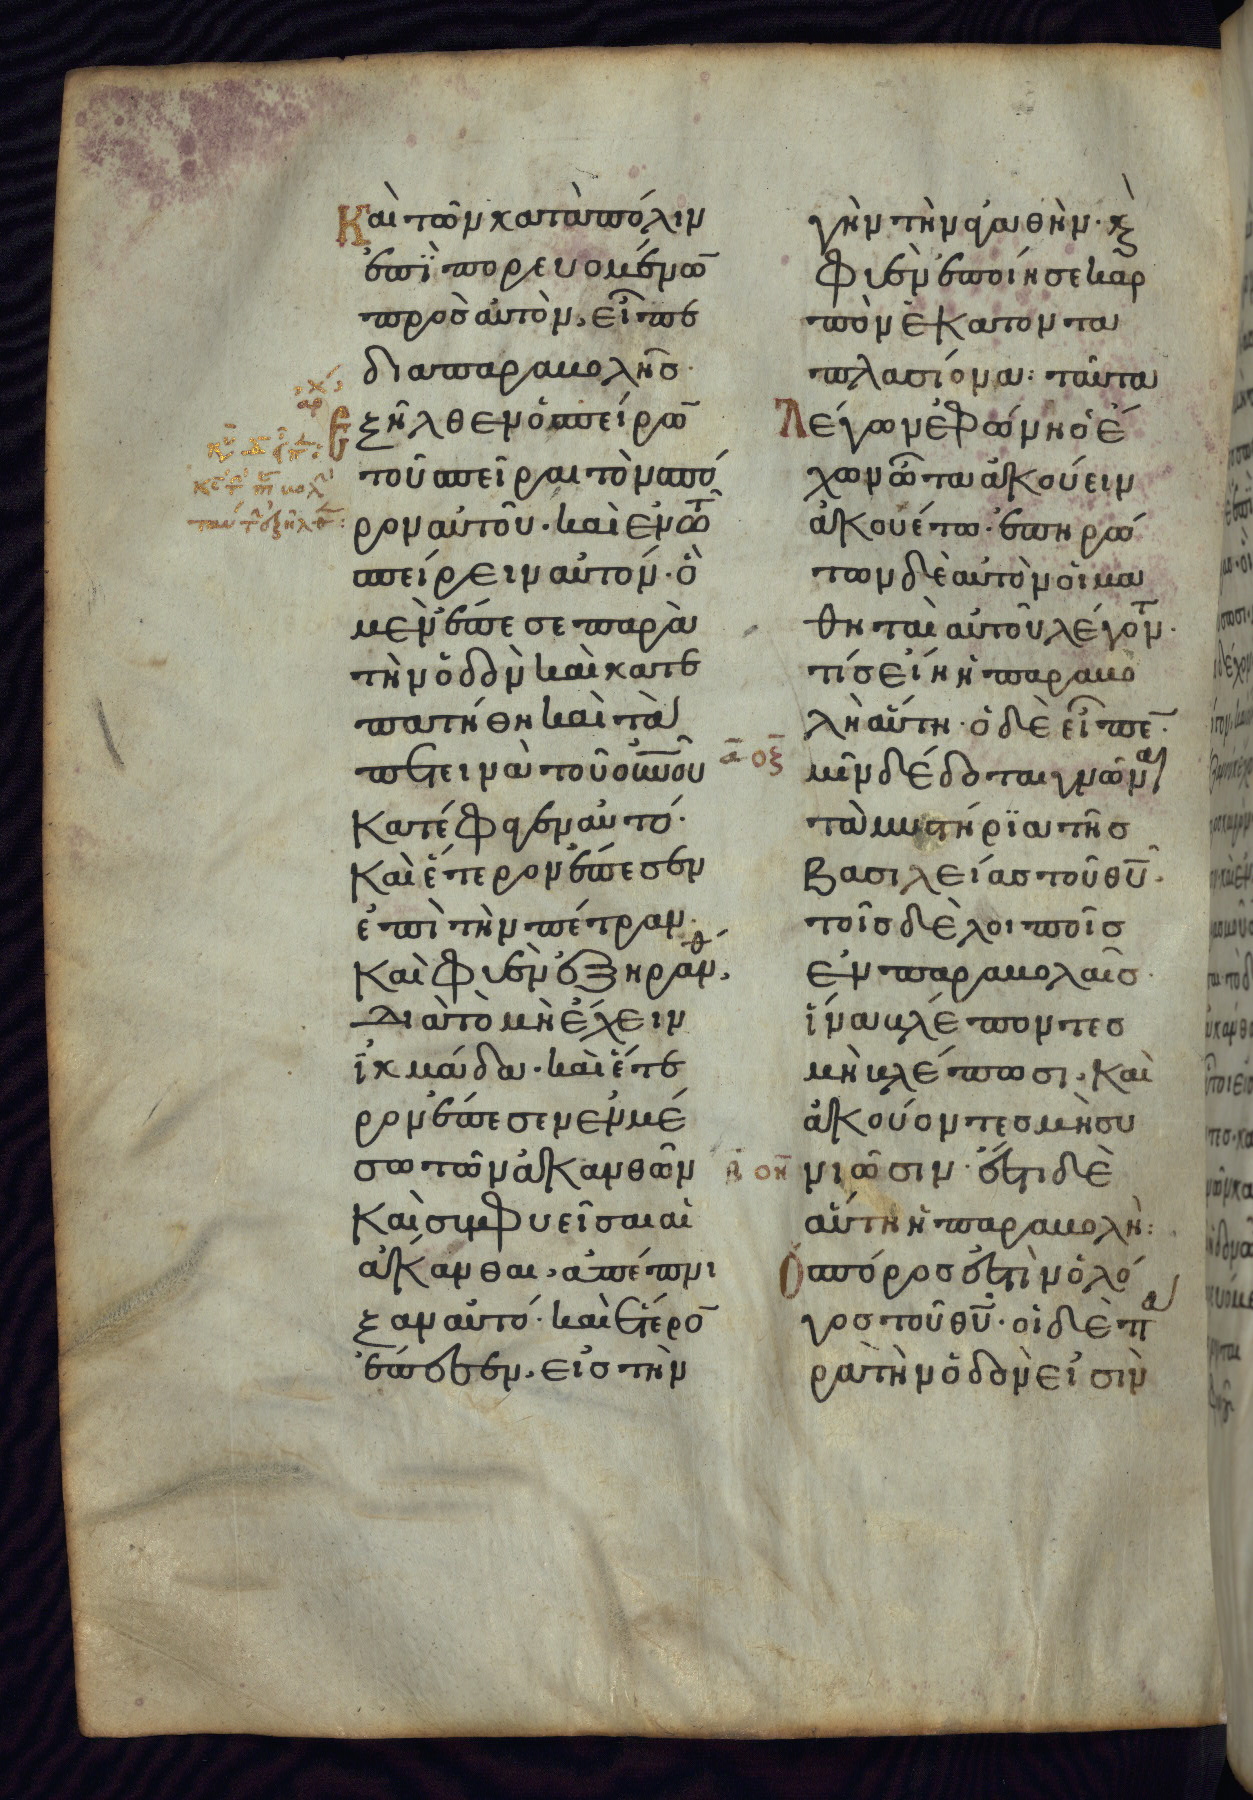 Καὶ τῶν κατὰ πόλιν
ἐπϊπορευομένω̅
πρὸσ αὐτὸν, εἶπε
δια παραβολῆσ·
ἐξῆλθεν ὁ σπείρω̅
τοῦ σπεῖραι τὸν σπό
ρον αὐτοῦ· καὶ ἐν τῶ
σπείρειν αὐτόν· ὃ
μὲν ἔπεσε παρὰ
τὴν ὁδὸν καὶ κατε
πατήθη καὶ τὰ
πετεινὰ τοῦ οὐ̅νοῦ
κατέφαγεν αὐτό·
καὶ ἕτερον ἔπεσεν
ἐπὶ τὴν πέτραν·
καὶ φυὲν ἐξηράνθ,
διὰ τὸ μὴ ἔχειν
ἰκμάδα· καὶ ἕτε
ρον ἔπεσεν ἐν μέ
σω τῶν ἀκανθῶν
καὶ σιμφυεῖσαι αἱ
ἄκανθαι, ἀπέπνι
ξαν αὐτό· καὶ ἕτερο̅
ἔπεσεν, εἰσ τὴν
γὴν τὴν ἀγαθὴν· κὲ
φυὲν ἐποίησε καρ
πὸν ἑκατοντα
πλασίονα: ταῦτα
Λέγων ἐφώνη ὁ ἔ
χων ὦτα ἀκούειν
ἀκουέτω· ἐπηρώ
των δὲ αὐτὸν οἱ μα
θηταὶ αὐτοῦ λέγοντ·
τίσ εἴη ἡ παραβο
λὴ αὕτη· ὁ δὲ εἶπε̅·
ὑμῖν δέδοται γνῶναι
τὰ μυστήρϊα τῆσ
Βασιλείασ τοῦ θ̅υ̅·
τοῖσ δὲ λοιποῖσ
ἐν παραβολαῖσ·
ἵνα βλέποντεσ
μὴ βλέπωσι, καὶ
ἀκούοντεσ μὴ συ
νιῶσιν· ἔστι δὲ
αὕτη ἡ παραβολὴ:
Ὁ σπόροσ ἐστὶν ὁ λό
γοσ τοῦ θ̅υ̅· οἱ δὲ πα
ρὰ τὴν ὁδὸν εἰσὶν